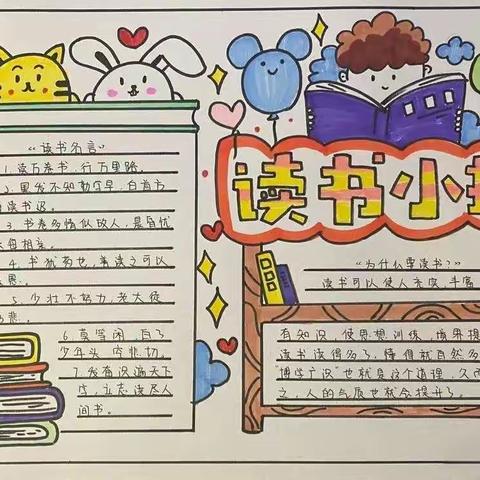 "读书名言"
1.读万卷书,行万里路。
2.黑发不知勤学早,白首方
悔读书迟。
3.书卷多情似故人,晨昏忧
乐每相亲。
4.书犹药也,善读之可以
医愚。
5.少壮不努力,老大徒
伤悲。
6.莫等闲,白了
少年头,空悲切。
7.发奋识遍天下
字,立志读尽人
间书。
读书小
"为什么要读书?"
读书可以使人充实,丰富
有知识,使思想训练,境界提
读书读得多了,懂得就自然多
"博学广识"也就是这个道理,久而
之,人的气质也就会提升了。